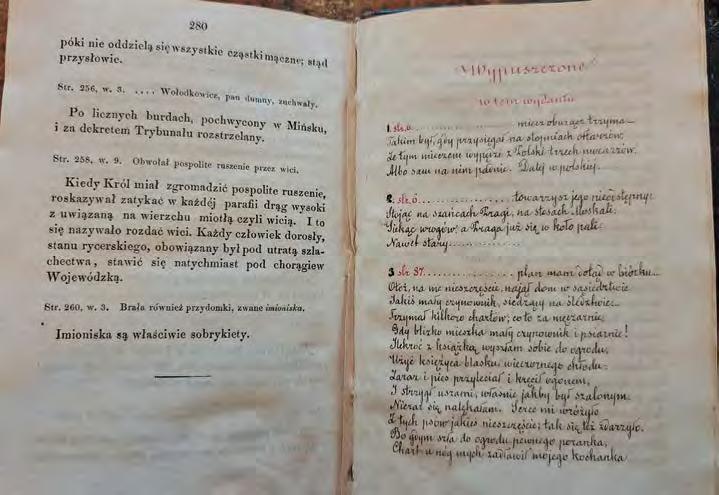 280
póki nie oddzielą się wszystkie cząstki mączne; stąd
przysłowie.
Str. 256, w. 3. .... Wołodkowicz, pan dumny, zuchwały.
Po licznych burdach, pochwycony w Mińsku,
i za dekretem Trybunału rozstrzelany.
Str. 258, w. 9. Obwołał pospolite ruszenie przez wici.
Kiedy Król miał zgromadzić pospolite ruszenie,
roskazywał zatykać w każdéj parafii drąg wysoki
z uwiązaną na wierzchu miotłą czyli wicią. I to
się nazywało rozdać wici. Każdy człowiek dorosły,
stanu rycerskiego, obowiązany był pod utratą szla-
chectwa, stawić się natychmiast pod chorągiew
Wojewódzką.
Str. 260, w. 3. Brała również przydomki, zwane imioniska.
Imioniska są właściwie sobrykiety.
Wypuszczone
w tem wydaniu
1. str. 6 .......... miecz oburącz trzyma
Takim był, gdy przysięgał na stopniach ołtarzów,
Że tym mieczem wypędzi z Polski trzech mocarzów,
Albo sam na nim padnie. Dalej w polskiej
2. str. 6 .......... towarzysz jego nieodstępny:
Stojąc na szańcach Pragi, na stosach Moskali,
Siekąc wrogów; a Praga już się w koło pali:
Nawet stary ..........
3 str 87 .......... plan mam dotąd w biórku
Otóż, na me nieszczęście, najął dom w sąsiedztwie
Jakiś mały czynownik, siedzący na śledztwie:
Trzymał kilkoro chartów; co to za męczarnie,
Gdy blizko mieszka mały czynownik i psiarnie!
Ilekroć z książką wyszłam sobie do ogrodu,
Użyć księżyca blasku, wieczornego chłodu:
Zaraz i pies przyleciał i kręcił ogonem,
I strzygł uszami, właśnie jakby był szalonym.
Nieraz się nalękałam. Serce mi wróżyło
Z tych psów jakieś nieszczęście; tak się też zdarzyło.
Bo gdym szła do ogrodu pewnego poranka,
Chart u nóg mych zadławił mojego kochanka